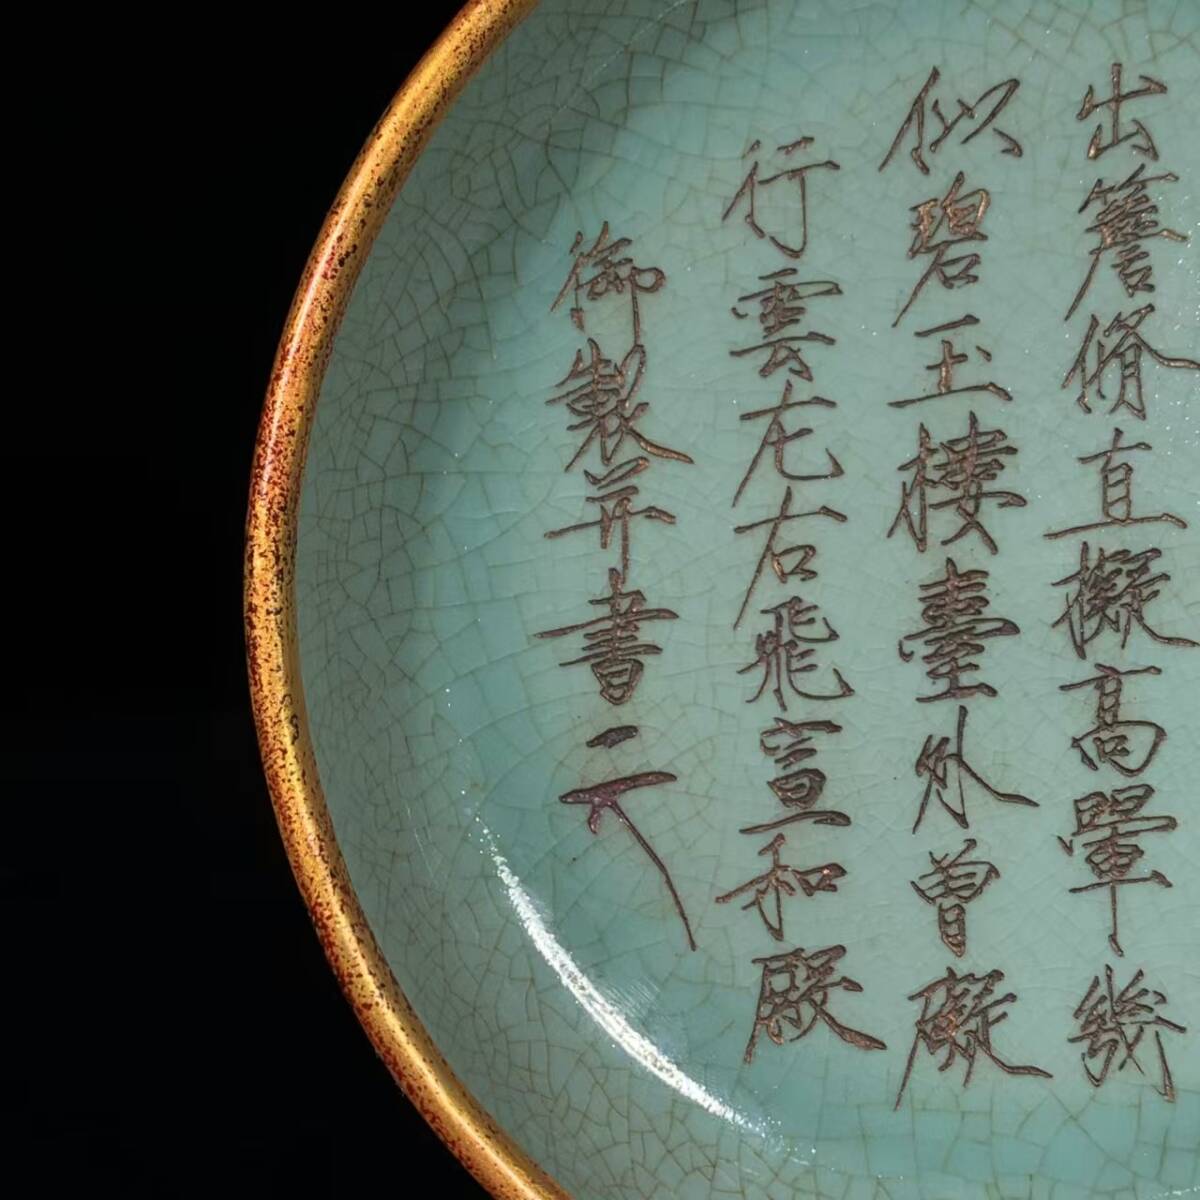 出簷脩直擬高暈幾
似碧玉樓臺外曾礙
行雲左右飛宣和殿
御製并書